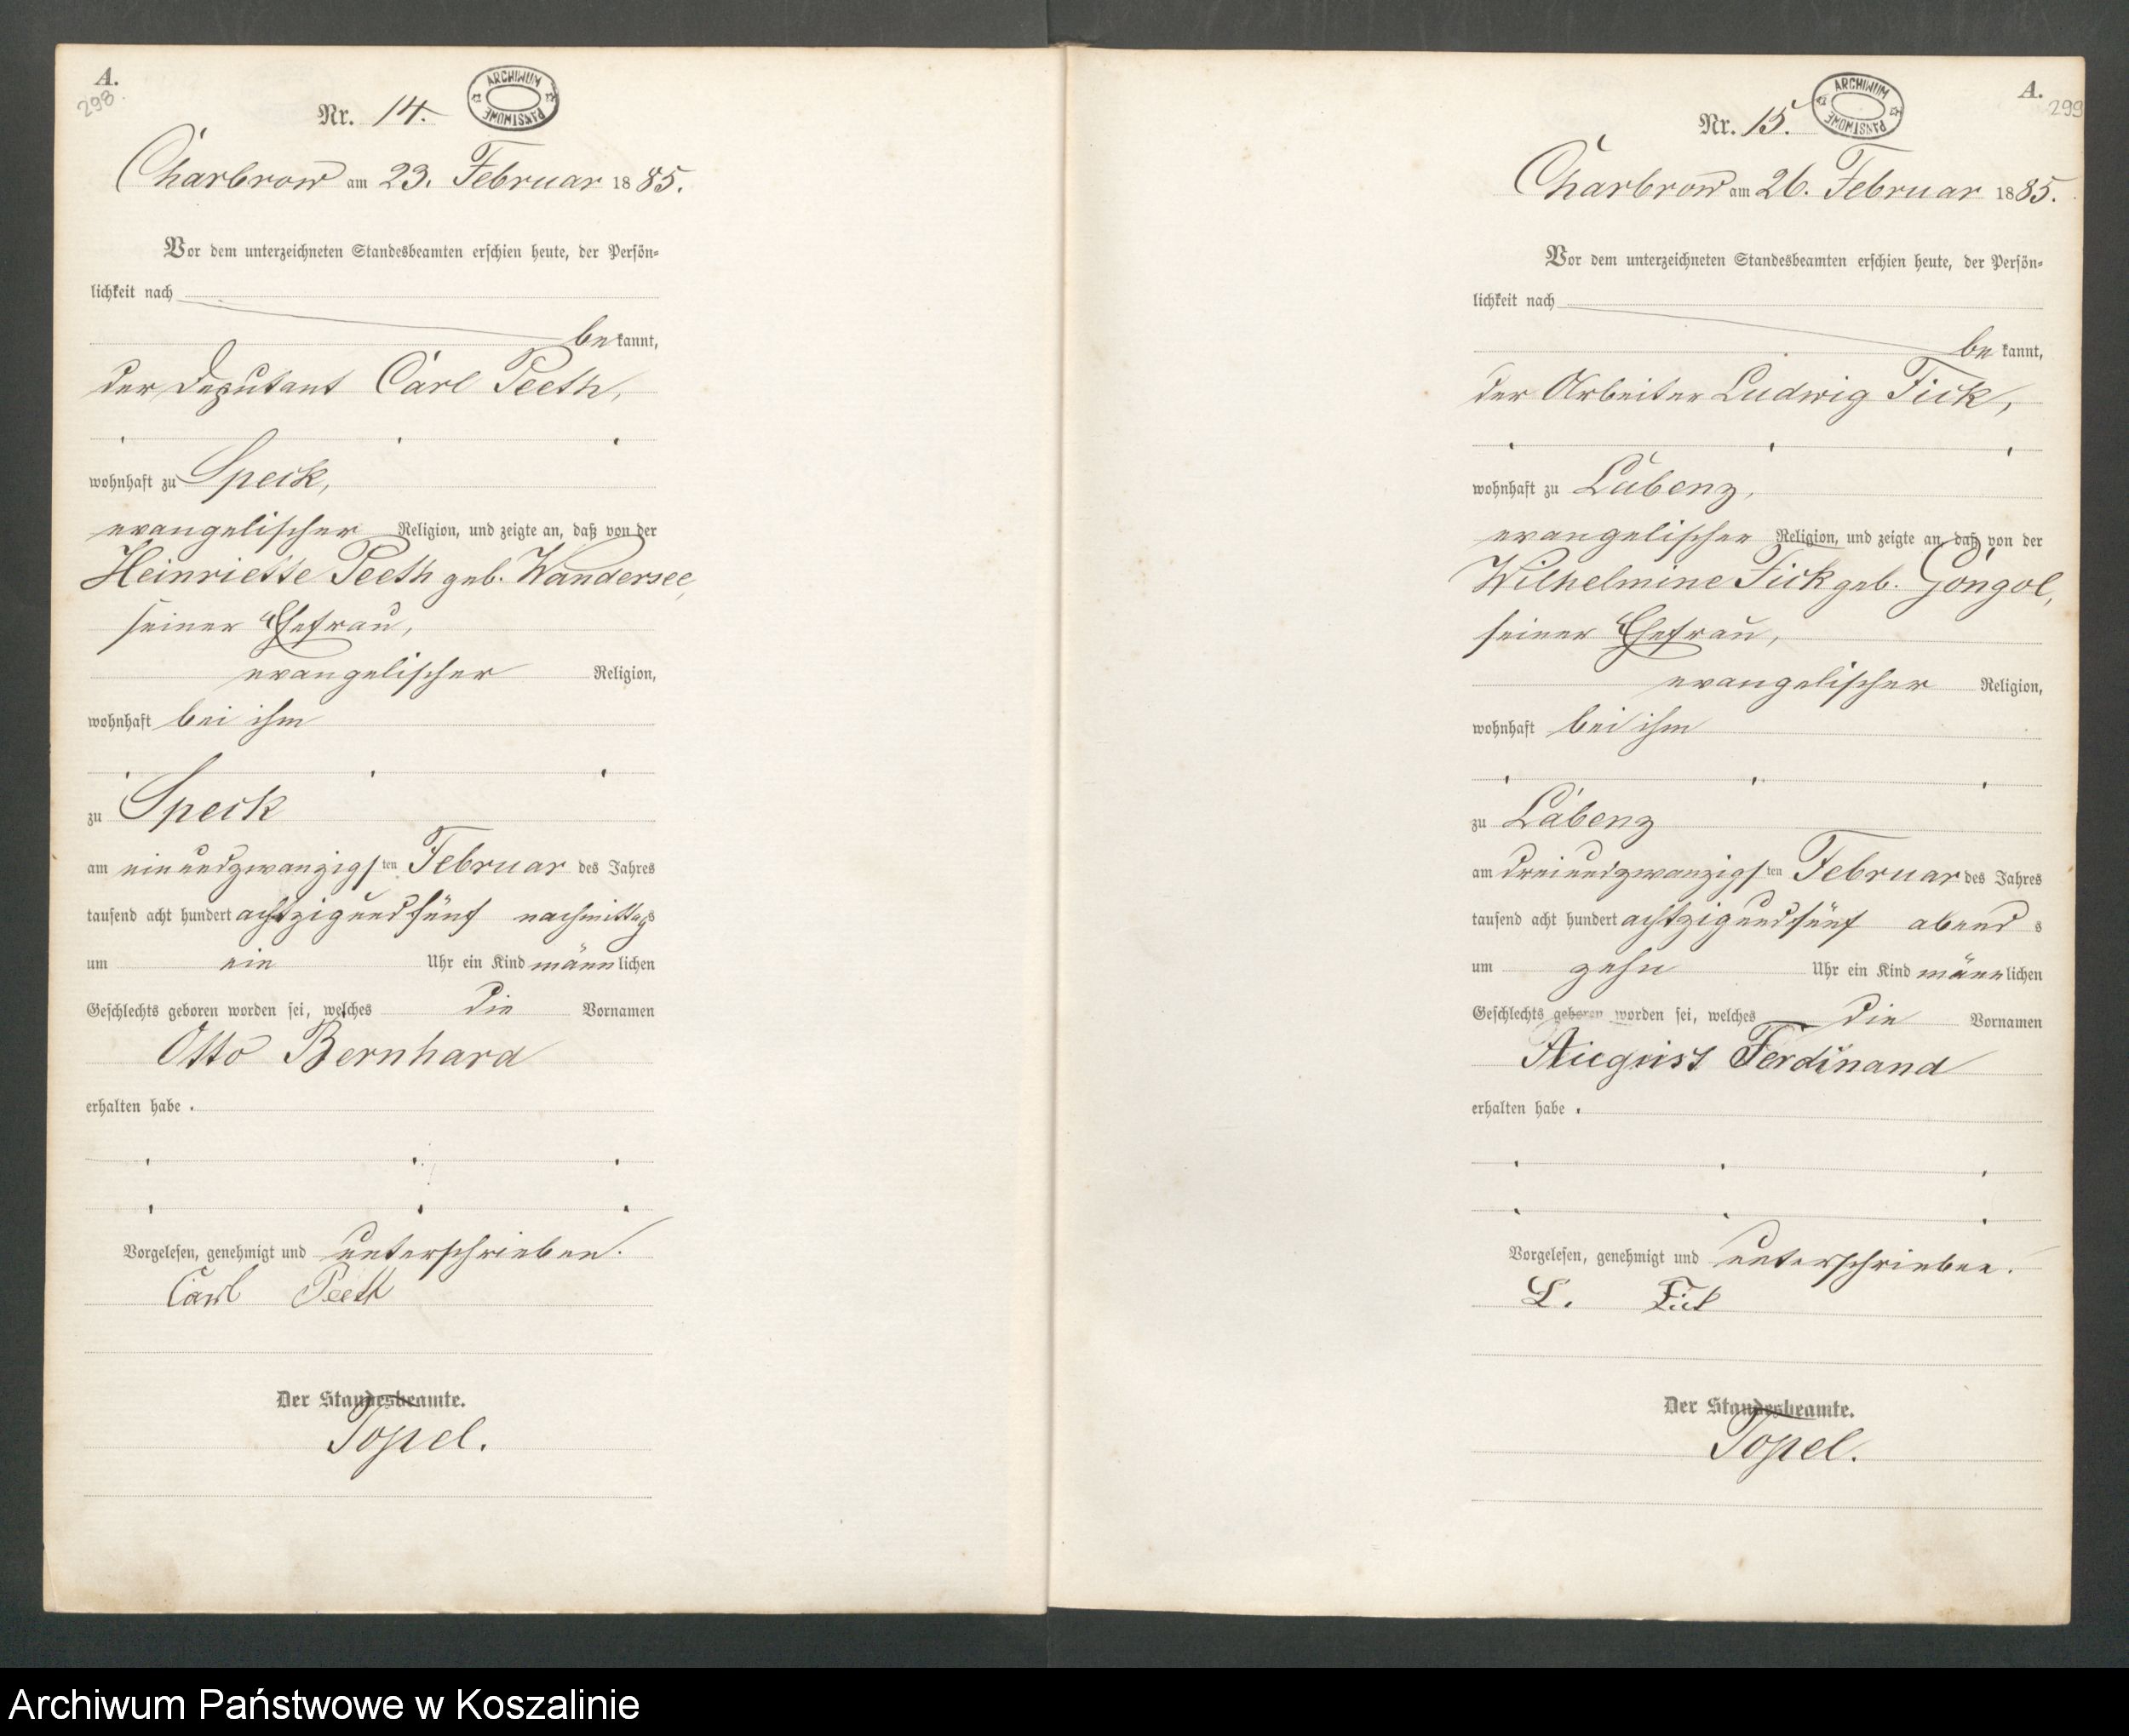 A.
298.
Nr. 14.
ARCHIWUM PAŃSTWOWE
Charbrow am 23. Februar 1885.
Vor dem unterzeichneten Standesbeamten erschien heute, der Persön-
lichkeit nach
be kannt,
der Deputant Carl Peeth,
wohnhaft zu Speck,
evangelischer Religion, und zeigte an, daß von der
Heinriette Peeth geb. Wandersee,
seiner Ehefrau,
evangelischer Religion,
wohnhaft bei ihm
zu Speck
am einundzwanzigsten Februar des Jahres
tausend acht hundert achtzigundfünf nachmittags
um ein Uhr ein Kind männlichen
Geschlechts geboren worden sei, welches die Vornamen
Otto Bernhard
erhalten habe.
Vorgelesen, genehmigt und unterschrieben.
Carl Peeth
Der Standesbeamte.
Topel.
A.
299
Nr. 15.
ARCHIWUM PAŃSTWOWE
Charbrow am 26. Februar 1885.
Vor dem unterzeichneten Standesbeamten erschien heute, der Persön-
lichkeit nach
be kannt,
der Arbeiter Ludwig Fick,
wohnhaft zu Labenz,
evangelischer Religion, und zeigte an, daß von der
Wilhelmine Fick geb. Gongol,
seiner Ehefrau,
evangelischer Religion,
wohnhaft bei ihm
zu Labenz
am dreiundzwanzigsten Februar des Jahres
tausend acht hundert achtzigundfünf abends
um zehn Uhr ein Kind männlichen
Geschlechts geboren worden sei, welches die Vornamen
August Ferdinand
erhalten habe.
Vorgelesen, genehmigt und unterschrieben.
L. Fick
Der Standesbeamte.
Topel.
Archiwum Państwowe w Koszalinie